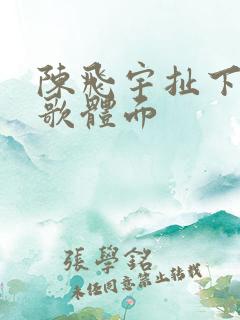 陳飛宇扯下
歌體而
張學銘
未經同意禁止轉載